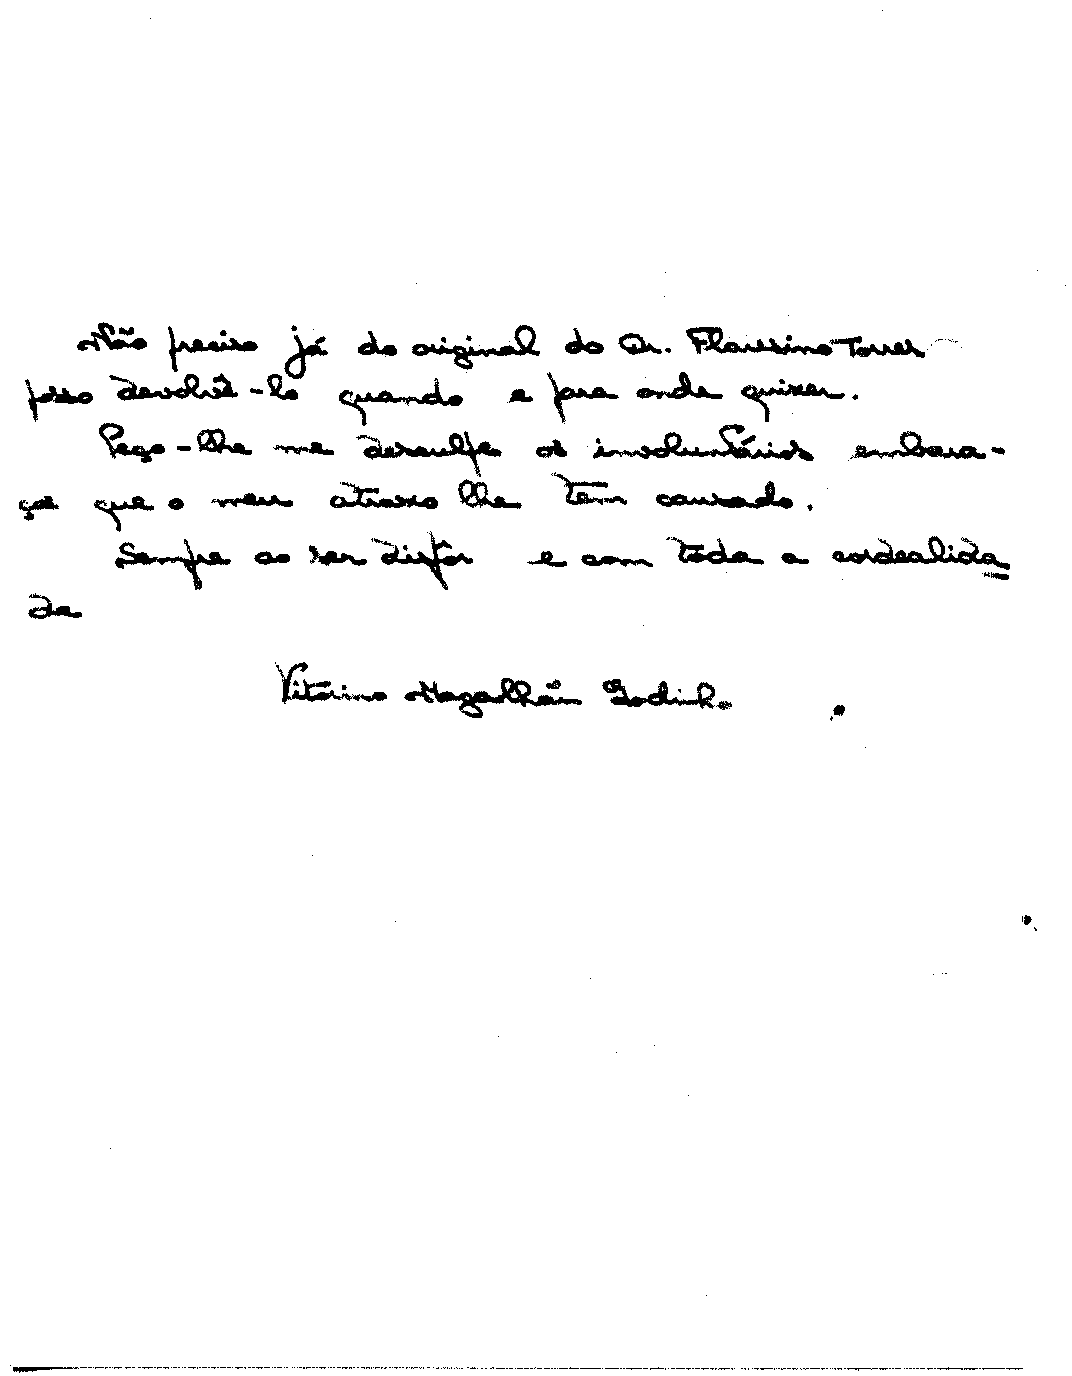 Não preciso já do original do Dr. Flausino Torres
posso devolvê-lo quando e para onde quizer.
Peço-lhe me desculpe os involuntários embara-
ços que o meu atraso lhe tem causado.
Sempre ao seu dispôr e com tôda a cordealida
de
Vitorino Magalhães Godinho